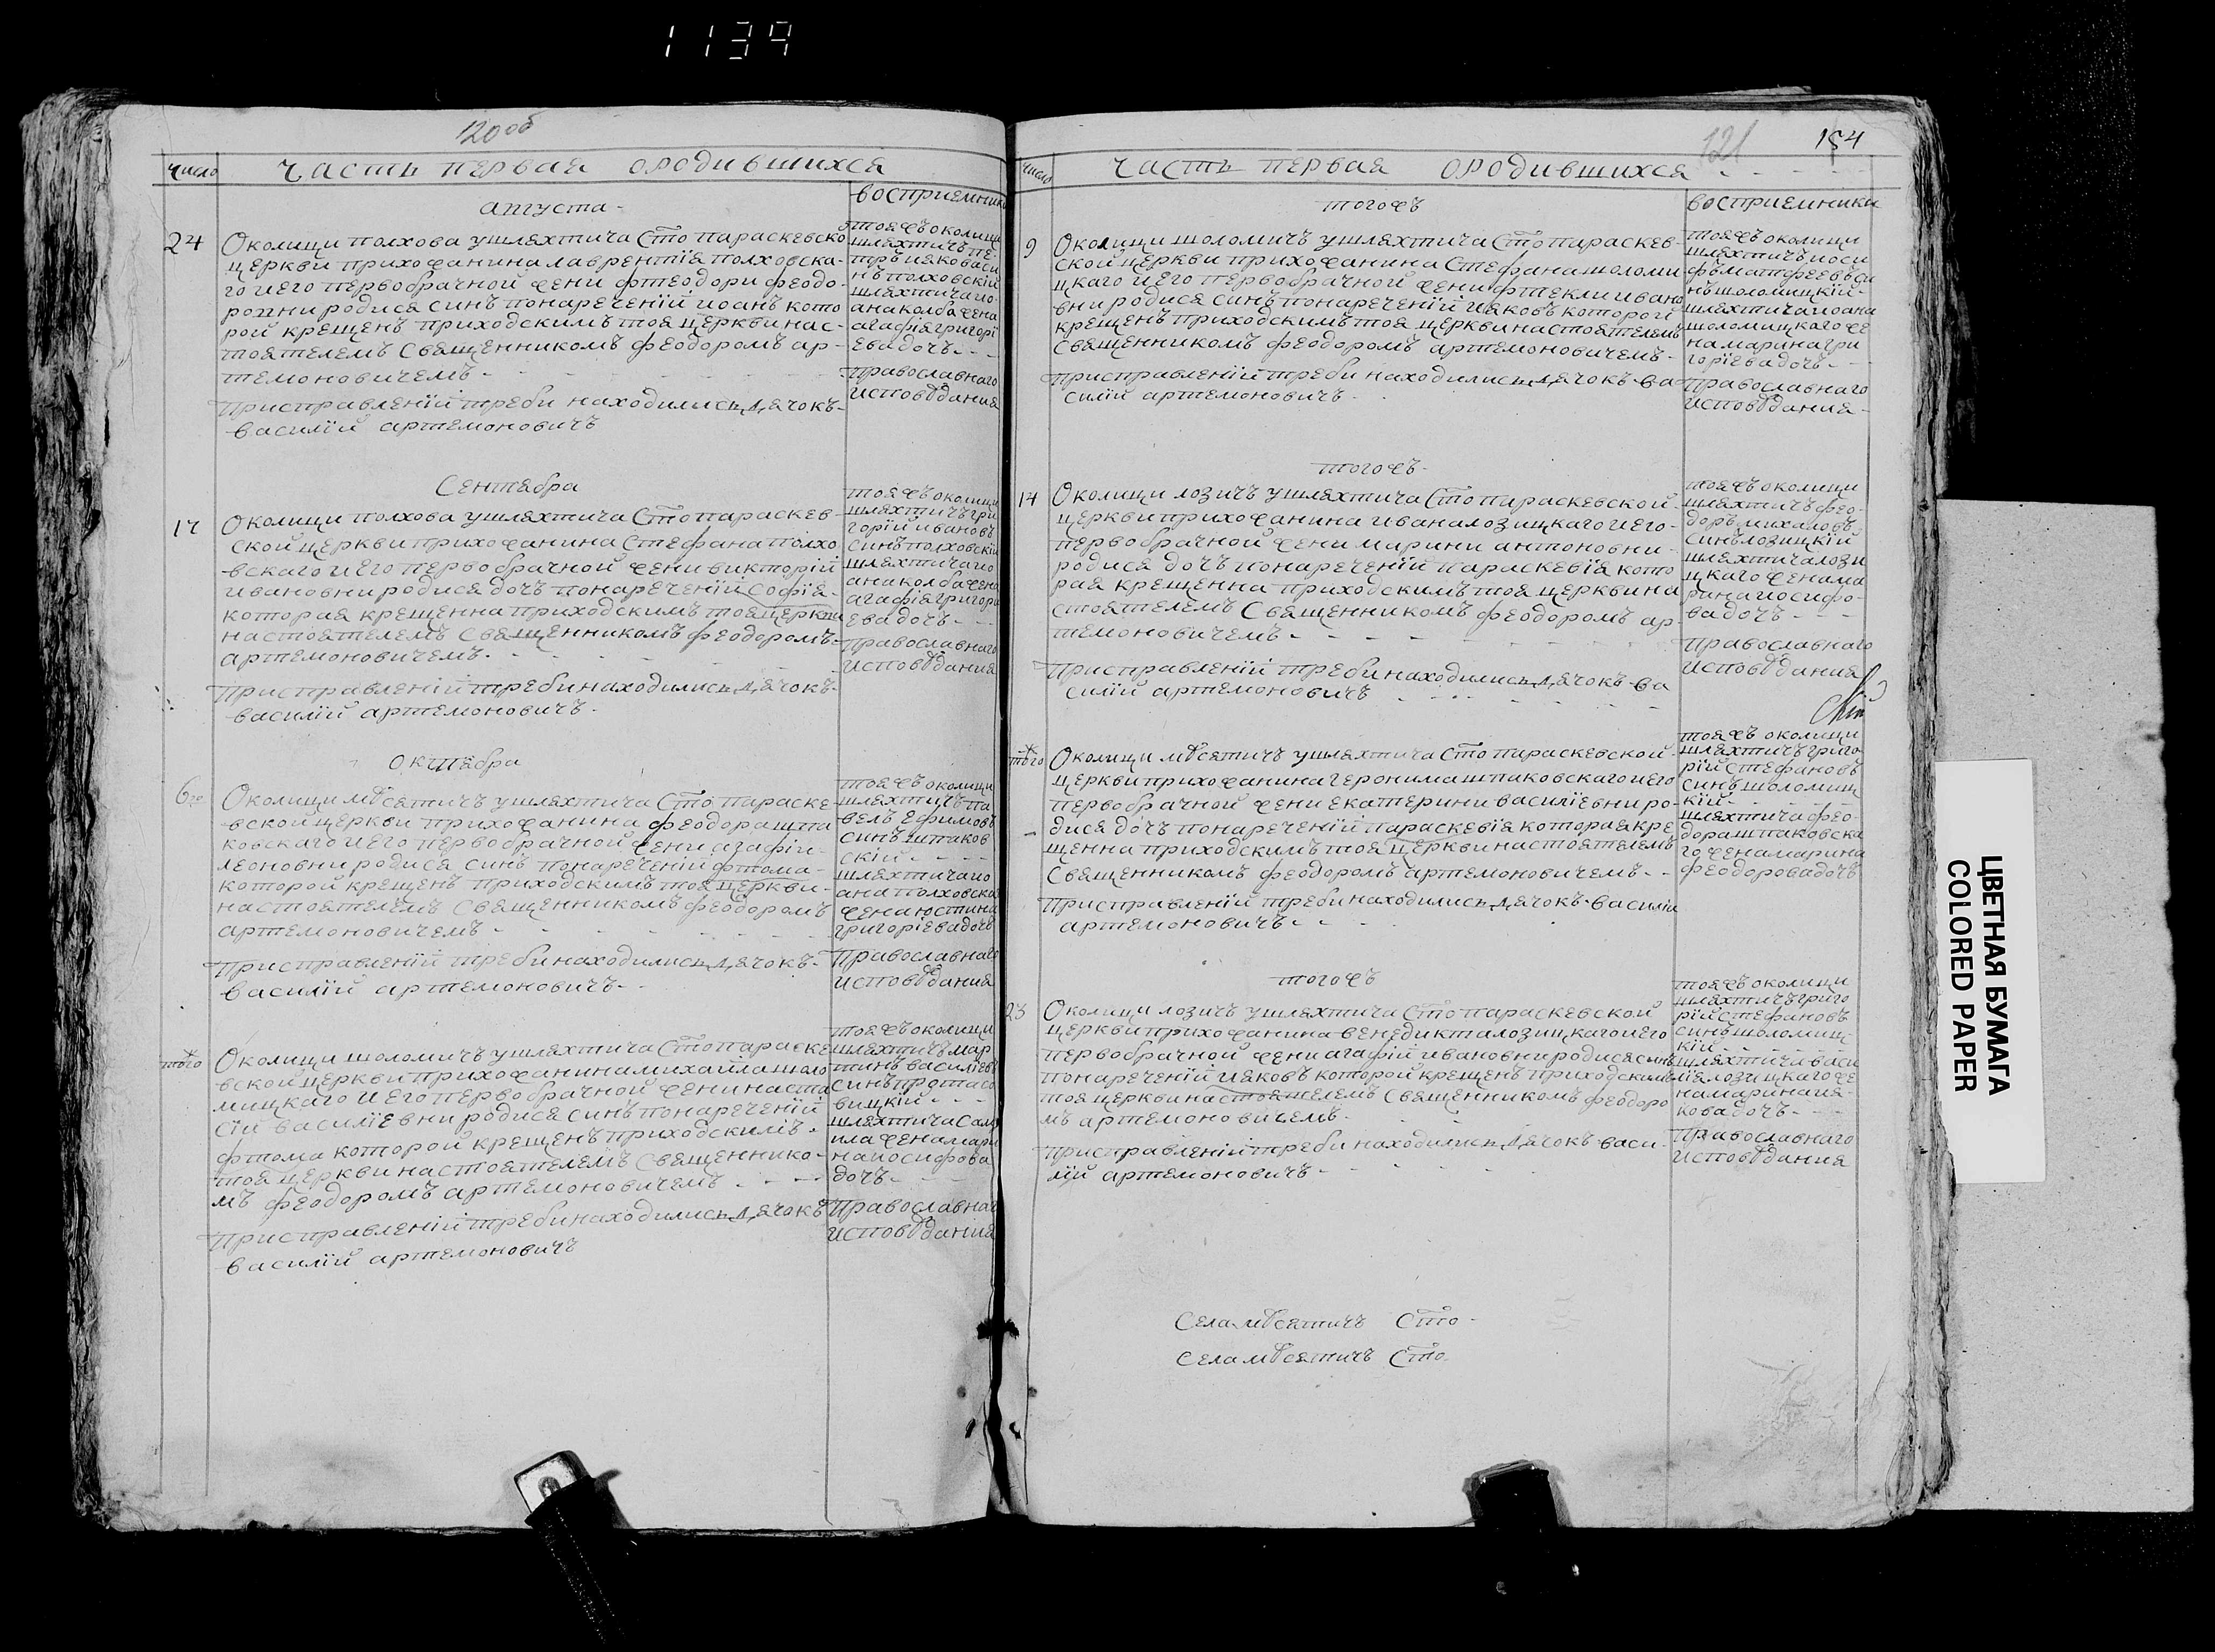 1139
120об
число
часть первая ородившихся
восприемники
августа
24
Околицы полхова ушляхтича Сто параскевско
церкви прихожанина лаврентія полховска-
го и его первобрачной жени фтеодори феодо-
родися синъ понареченїй иоанъ кото
рой крещенъ приходскимъ тоя церкви нас-
тоятелемъ Священникомъ феодоромъ ар-
темоновичемъ
присправленїй треби находились дячокъ
василїй артемоновичъ
тояжъ околици
шляхтичъ пе
тръ иаковаси
нъ полховскій
шляхтича ио
ана колба жена
агафія григорі
ева дочъ
православнаго
исповѣданія
Сентября
17
Околици полхова ушляхтича Сто параскев-
ской церкви прихожанина Стефана полхо
вскаго и его первобрачной жени викторїй
ивановни родися дочъ понареченїй Софія
которая крещенна приходскимъ тоя церкви
настоятелемъ Священникомъ феодоромъ
артемоновичемъ
присправленїй треби находились дячокъ
василїй артемоновичъ
тояжъ околици
шляхтичъ гри
горїй ивановъ
синъ полховскій
шляхтича ио
ана колба жена
агафія григори
ева дочъ
православнаго
исповѣданія
октября
6го
Околици мѣсятичъ ушляхтича Сто параске-
вской церкви прихожанина феодора шпа
ковскаго и его первобрачной жени агафіи
леоновни родися синъ понареченїй фтома
которой крещенъ приходскимъ тоя церкви
настоятелемъ Священникомъ феодоромъ
артемоновичемъ
присправленїй треби находились дячокъ
василїй артемоновичъ
тояжъ околици
шляхтичъ па
велъ Ефимовъ
синъ шпаков
скій
шляхтича ио
ана полховска
жена юстина
григоріева дочъ
православнаго
исповѣданія
того
Околици шоломичъ ушляхтича Сто параске
вской церкви прихожанина михаила шоло
мицкаго и его первобрачной жени наста
сїи василїевни родися синъ понареченїй
фтома которой крещенъ приходскимъ
тоя церкви настоятелемъ Священнико-
мъ феодоромъ артемоновичемъ
присправленїй треби находились дячокъ
василїй артемоновичъ
тояжъ околици
шляхтичъ мар
тинъ василїевъ
синъ протасо
вицкій
шляхтича Сам
ила жена мари
на иосифова
дочъ
православнаго
исповѣданія
121
154
число
часть первая ородившихся
восприемники
тогожъ
9
Околици шоломичъ ушляхтича Сто параскев-
ской церкви прихожанина Стефана шоломи
цкаго и его первобрачной жени фтекли ивано
вни родися синъ понареченїй иаковъ которой
крещенъ приходскимъ тоя церкви настоятелемъ
Священникомъ феодоромъ артемоновичемъ
присправленїй треби находились дячокъ ва
силїй артемоновичъ
тояжъ околици
шляхтичъ иоси
фъ матфеевъ си
нъ шоломицкій
шляхтича иоана
шоломицкаго же
на марина гри
горїева дочъ
православнаго
исповѣданія
тогожъ
14
Околици лозичъ ушляхтича Сто параскевской
церкви прихожанина ивана лозицкаго и его
первобрачной жени марини антоновни
родися дочъ понареченїй параскевія кото
рая крещенна приходскимъ тоя церкви на
стоятелемъ Священникомъ феодоромъ ар
темоновичемъ
присправленїй треби находились дячокъ ва
силїй артемоновичъ
тояжъ околици
шляхтичъ фео-
доръ михаловъ
синъ лозицкій
шляхтича лози
цкаго жена ма
рина иосифо-
ва дочъ
православнаго
исповѣданія
того
Околици мѣсятичъ ушляхтича Сто параскевской
церкви прихожанина геронима шпаковскаго и его
первобрачной жени екатерини василїевни ро-
дися дочъ понареченїй параскевія которая кре
щенна приходскимъ тоя церкви настоятелемъ
Священникомъ феодоромъ артемоновичемъ
присправленїй треби находились дячокъ василїй
артемоновичъ
тояжъ околици
шляхтичъ григо
рїй стефановъ
синъ шоломиц
кій
шляхтича фео-
дора шпаковска
го жена марина
феодорова дочъ
тогожъ
23
Околици лозичъ ушляхтича Сто параскевской
церкви прихожанина венедикта лозицкаго и его
первобрачной жени агафїй ивановни родися синъ
понареченїй иаковъ которой крещенъ приходскимъ
тоя церкви настоятелемъ Священникомъ феодоро
мъ артемоновичемъ
присправленїй треби находились дячокъ васи
лїй артемоновичъ
тояжъ околици
шляхтичъ григо
рїй стефановъ
синъ шоломиц
кій
шляхтича васи
лїя лозицкаго же
на марина ия-
кова дочъ
православнаго
исповѣданія
Села мѣсятичъ Сто
Села мѣсятичъ Сто
ЦВЕТНАЯ БУМАГА
COLORED PAPER